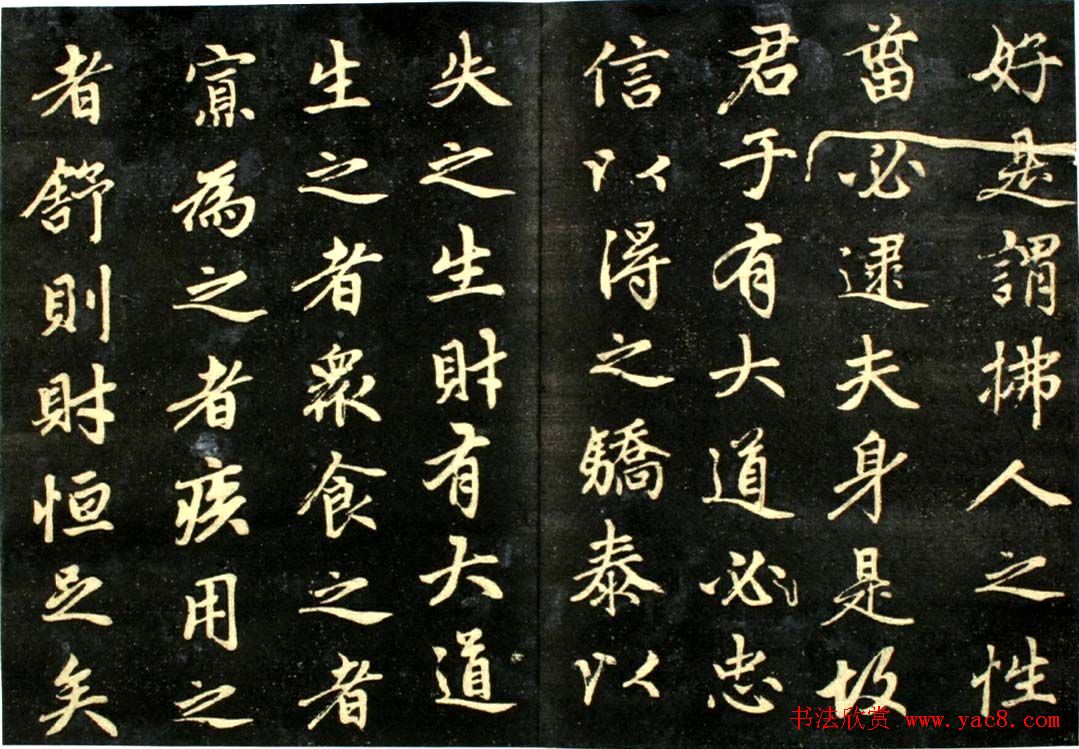 好是謂拂人之性
菑必逮夫身是故
君子有大道必忠
信以得之驕泰以
失之生財有大道
生之者衆食之者
寡為之者疾用之
者舒則財恒足矣
书法欣赏 www.yac8.com